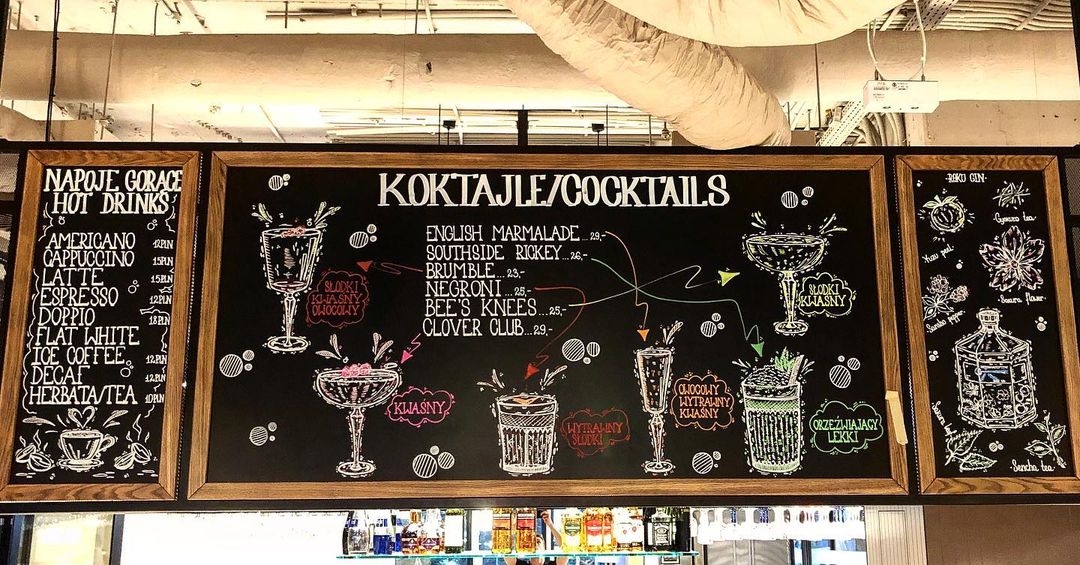 NAPOJE GORACE
HOT DRINKS
AMERICANO 12PLN
CAPPUCCINO 15PLN
LATTE 15PLN
ESPRESSO 12PLN
DOPPIO 18PLN
FLAT WHITE
ICE COFFEE 12PLN
DECAF 12PLN
HERBATA/TEA 10PLN
KOKTAJLE/COCKTAILS
ENGLISH MARMALADE...29,-
SOUTHSIDE RICKEY...26,-
BRUMBLE...23,-
NEGRONI...25,-
BEE'S KNEES...25,-
CLOVER CLUB...29,-
SŁODKI
KWAŚNY
OWOCOWY
KWAŚNY
WYTRAWNY
SŁODKI
OWOCOWY
WYTRAWNY
KWAŚNY
SŁODKI
KWAŚNY
ORZEŹWIAJĄCY
LEKKI
·ROKU GIN·
Gyokuro tea
Yuzu peel
Sakura flower
Sansho pepper
Sencha tea